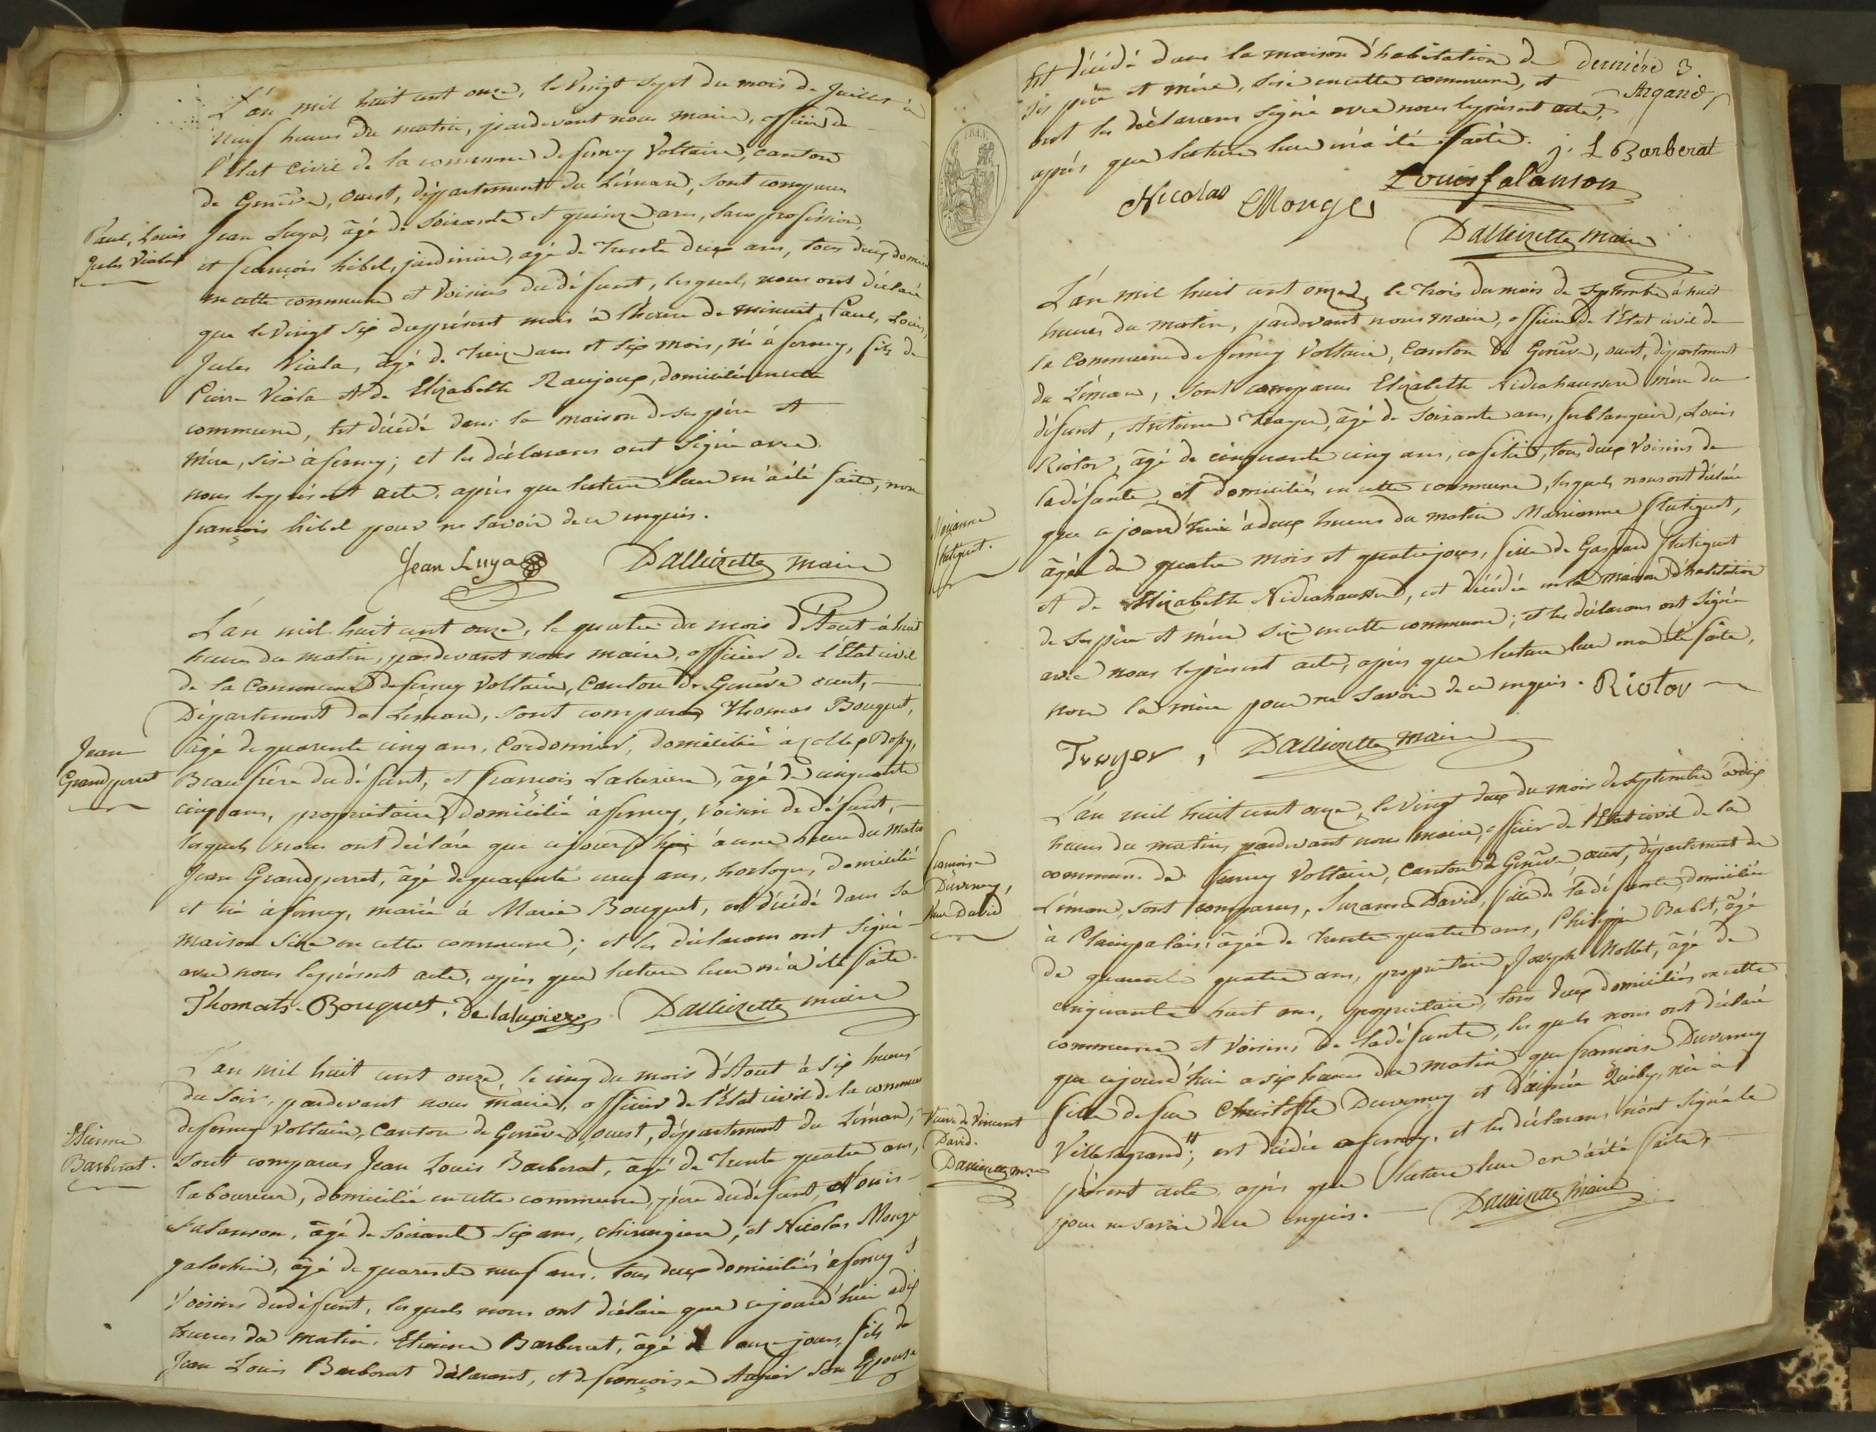 L'an mil huit cent onze, le vingt sept du mois de Juillet à
neuf heures du matin, pardevant nous maire, officier de
l'Etat Civil de la commune de ferney Voltaire, canton
de Genêve, ouest, département du Léman, sont comparus
Paul, Louis
Jules Viala
Jean Luya, âgé de soixante et quinze ans, sans profession,
et françois hibel, jardinier, agé de trente deux ans, tous deux domiciliés
en cette commune et Voisins du défunt, lesquels nous ont déclaré
que le vingt six du présent mois à l'heure de minuit, Paul, Louis,
Jules Viala, âgé de treize ans et six mois, né à ferney, fils de
Pierre Viala et de Elizabeth Raujoux, domiciliés en cette
commune, est décédé dans la maison de ses père et
mère, sise à ferney; et les déclarans ont signé avec
nous le présent acte, après que lecture leur en a été faite, non
françois hibel pour ne savoir de ce enquis.
Jean Luya Dallizette maire
L'an mil huit cent onze, le quatre du mois d'Aout à huit
heures du matin, pardevant nous maire, officier de l'État civil
de la Commune de ferney Voltaire, Canton de Genêve ouest,
Département du Léman, sont comparus Thomas Bouquet,
Jean
Grandperret
âgé de quarente cinq ans, Cordonnier, domicilié à
Beaufrère du défunt, et françois Lalurière, âgé de cinquante
cinq ans, propriétaire domicilié à ferney, voisin du défunt,
lesquels nous ont déclaré que cejourd'hui à une heure du matin
Jean Grandperret, âgé de quarante neuf ans, horloger, domicilié
et né à ferney, marié à Marie Bouquet, est décédé dans sa
maison sise en cette commune; et les déclarans ont signé
avec nous le présent acte, après que lecture leur en a été faite.
Thomats Bouquet. Dallizette maire
L'an mil huit cent onze le cinq du mois d'Aout à six heures
du soir, pardevant nous maire, officier de l'État civil de la commune
de ferney Voltaire, Canton de Genêve, ouest, département du Léman,
Etienne
Barberat.
sont comparus Jean Louis Barberat, âgé de trente quatre ans,
laboureur, domicilié en cette commune, père du défunt, Louis
falanson, âgé de soixante six ans, chirurgien, et Nicolas Monge
galochier, âgé de quarente neuf ans, tous deux domiciliés à ferney et
Voisins du défunt, lesquels nous ont déclaré que cejourd'hui à dix
heures du matin, Etienne Barberat, âgé de onze jours, fils de
Jean Louis Barberat déclarant, et de françoise Argier son Epouse
est décédé dans la maison d'habitation de
ses père et mère, sise en cette commune, et
ont les déclarans signé avec nous le présent acte,
après que lecture leur en a été faite.
dernière 3.
Argand
j. L Barberat
Nicolas Monge Louis falanson
Dallizette maire
L'an mil huit cent onze, le trois du mois de septembre à huit
heures du matin, pardevant nous maire, officier de l'Etat civil de
la Commune de ferney Voltaire, Canton de Genêve, ouest, département
du Léman, sont comparus Elizabeth Nidrahaussen mère du
défunt, Antoine Troyer, âgé de soixante ans, ferblanquier, Louis
Riotor, âgé de cinquante cinq ans, cafetier, tous deux Voisins de
la défunte, et domiciliés en cette commune, lesquels nous ont déclaré
Marianne
que cejourd'hui à deux heures du matin Marianne
âgée de quatre mois et quatre jours, fille de Gaspard
et de Elizabeth Nidrahaussen, est décédée en la maison d'habitation
de ses père et mère size en cette commune; et les déclarans ont signé
avec nous le présent acte, après que lecture leur en a été faite,
non la mère pour ne savoir de ce enquis. Riotor
Troyer, Dallizette maire
L'an mil huit cent onze, le vingt deux du mois de septembre à dix
heures du matin, pardevant nous maire, officier de l'Etat civil de la
commune de ferney Voltaire, Canton de Genêve ouest, département du
françoise
Duverney,
Veuve David
Léman, sont comparus, Suzanne David, fille de la défunte, domiciliée
à Plainpalais, âgée de trente quatre ans, Philippe Babst, âgé
de quarante quatre ans, propriétaire, Joseph Mollet, âgé de
cinquante huit ans, propriétaire, tous deux domiciliés en cette
commune et voisins de la défunte, lesquels nous ont déclaré
que cejourd'hui à six heures du matin que françoise Duverney
fille de feu Christophe Duverney et d'aimée Quiby, née à
Veuve de Vincent
David.
Dallizette maire
Villelagrand #; est décédée à ferney, et les déclarans n'ont signé le
présent acte, après que lecture leur en a été faite,
pour ne savoir de ce enquis. Dallizette maire